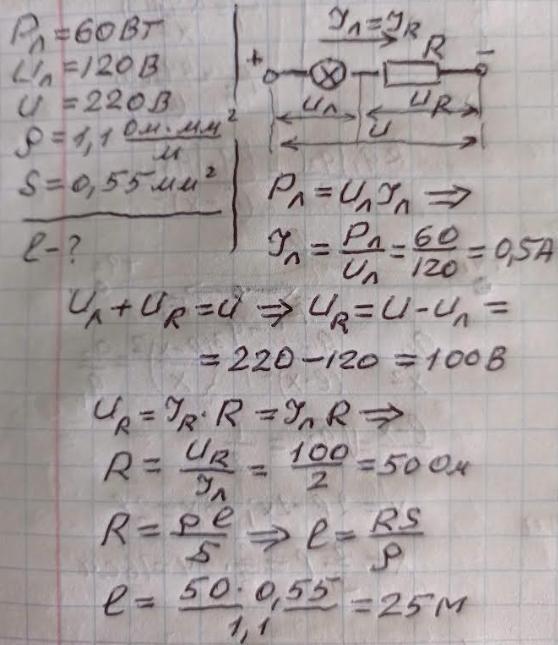 Pл = 60 Вт
Uл = 120 В
U = 220 В
ρ = 1,1 Ом·мм²/м
S = 0,55 мм²
l - ?
Iл = IR
+ R -
Uл UR
U
Pл = Uл Iл ⇒
Iл = Pл/Uл = 60/120 = 0,5 А
Uл + UR = U ⇒ UR = U - Uл =
= 220 - 120 = 100 В
UR = IR · R = Iл R ⇒
R = UR/Iл = 100/2 = 50 Ом
R = ρ l/S ⇒ l = RS/ρ
l = 50 · 0,55/1,1 = 25 м